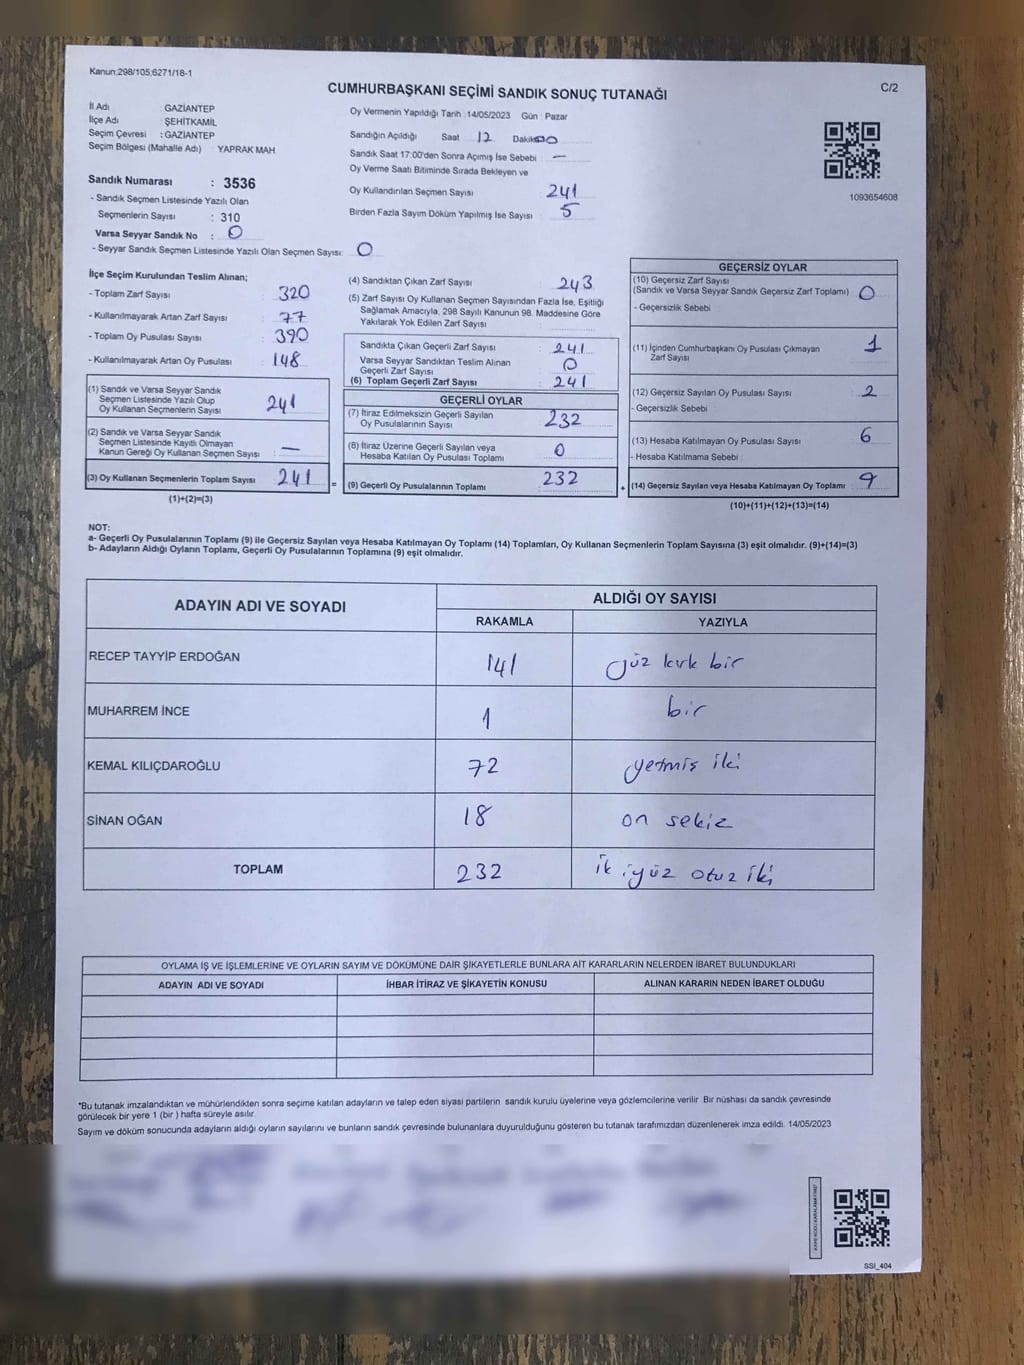 Kanun:298/105;6271/18-1
C/2
CUMHURBAŞKANI SEÇİMİ SANDIK SONUÇ TUTANAĞI
İl Adı : GAZİANTEP
İlçe Adı : ŞEHİTKAMİL
Seçim Çevresi : GAZİANTEP
Seçim Bölgesi (Mahalle Adı) : YAPRAK MAH.
Sandık Numarası : 3536
- Sandık Seçmen Listesinde Yazılı Olan
Seçmenlerin Sayısı : 310
Varsa Seyyar Sandık No : 0
- Seyyar Sandık Seçmen Listesinde Yazılı Olan Seçmen Sayısı: 0
Oy Vermenin Yapıldığı Tarih : 14/05/2023 Gün : Pazar
Sandığın Açıldığı Saat 12 Dakika 00
Sandık Saat 17:00'den Sonra Açımış İse Sebebi : —
Oy Verme Saati Bitiminde Sırada Bekleyen ve
Oy Kullandırılan Seçmen Sayısı 241
Birden Fazla Sayım Döküm Yapılmış İse Sayısı : 5
1093654608
İlçe Seçim Kurulundan Teslim Alınan;
- Toplam Zarf Sayısı : 320
- Kullanılmayarak Artan Zarf Sayısı : 77
- Toplam Oy Pusulası Sayısı : 390
- Kullanılmayarak Artan Oy Pusulası : 148
(1) Sandık ve Varsa Seyyar Sandık
Seçmen Listesinde Yazılı Olup
Oy Kullanan Seçmenlerin Sayısı : 241
(2) Sandık ve Varsa Seyyar Sandık
Seçmen Listesinde Kayıtlı Olmayan
Kanun Gereği Oy Kullanan Seçmen Sayısı : —
(3) Oy Kullanan Seçmenlerin Toplam Sayısı : 241
(1)+(2)=(3)
=
(4) Sandıktan Çıkan Zarf Sayısı : 243
(5) Zarf Sayısı Oy Kullanan Seçmen Sayısından Fazla İse, Eşitliği
Sağlamak Amacıyla, 298 Sayılı Kanunun 98. Maddesine Göre
Yakılarak Yok Edilen Zarf Sayısı :
Sandıkta Çıkan Geçerli Zarf Sayısı : 241
Varsa Seyyar Sandıktan Teslim Alınan
Geçerli Zarf Sayısı : 0
(6) Toplam Geçerli Zarf Sayısı : 241
GEÇERLİ OYLAR
(7) İtiraz Edilmeksizin Geçerli Sayılan
Oy Pusulalarının Sayısı : 232
(8) İtiraz Üzerine Geçerli Sayılan veya
Hesaba Katılan Oy Pusulası Toplamı : 0
(9) Geçerli Oy Pusulalarının Toplamı : 232
+
GEÇERSİZ OYLAR
(10) Geçersiz Zarf Sayısı
(Sandık ve Varsa Seyyar Sandık Geçersiz Zarf Toplamı) : 0
- Geçersizlik Sebebi :
(11) İçinden Cumhurbaşkanı Oy Pusulası Çıkmayan
Zarf Sayısı : 1
(12) Geçersiz Sayılan Oy Pusulası Sayısı : 2
- Geçersizlik Sebebi :
(13) Hesaba Katılmayan Oy Pusulası Sayısı : 6
- Hesaba Katılmama Sebebi :
(14) Geçersiz Sayılan veya Hesaba Katılmayan Oy Toplamı : 9
(10)+(11)+(12)+(13)=(14)
NOT:
a- Geçerli Oy Pusulalarının Toplamı (9) ile Geçersiz Sayılan veya Hesaba Katılmayan Oy Toplamı (14) Toplamları, Oy Kullanan Seçmenlerin Toplam Sayısına (3) eşit olmalıdır. (9)+(14)=(3)
b- Adayların Aldığı Oyların Toplamı, Geçerli Oy Pusulalarının Toplamına (9) eşit olmalıdır.
ADAYIN ADI VE SOYADI
ALDIĞI OY SAYISI
RAKAMLA YAZIYLA
RECEP TAYYİP ERDOĞAN 141 yüz kırk bir
MUHARREM İNCE 1 bir
KEMAL KILIÇDAROĞLU 72 yetmiş iki
SİNAN OĞAN 18 on sekiz
TOPLAM 232 ikiyüz otuz iki
OYLAMA İŞ VE İŞLEMLERİNE VE OYLARIN SAYIM VE DÖKÜMÜNE DAİR ŞİKAYETLERLE BUNLARA AİT KARARLARIN NELERDEN İBARET BULUNDUKLARI
ADAYIN ADI VE SOYADI İHBAR İTİRAZ VE ŞİKAYETİN KONUSU ALINAN KARARIN NEDEN İBARET OLDUĞU
*Bu tutanak imzalandıktan ve mühürlendikten sonra seçime katılan adayların ve talep eden siyasi partilerin sandık kurulu üyelerine veya gözlemcilerine verilir. Bir nüshası da sandık çevresinde
görülecek bir yere 1 (bir ) hafta süreyle asılır.
Sayım ve döküm sonucunda adayların aldığı oyların sayılarını ve bunların sandık çevresinde bulunanlara duyurulduğunu gösteren bu tutanak tarafımızdan düzenlenerek imza edildi. 14/05/2023
SSI_404